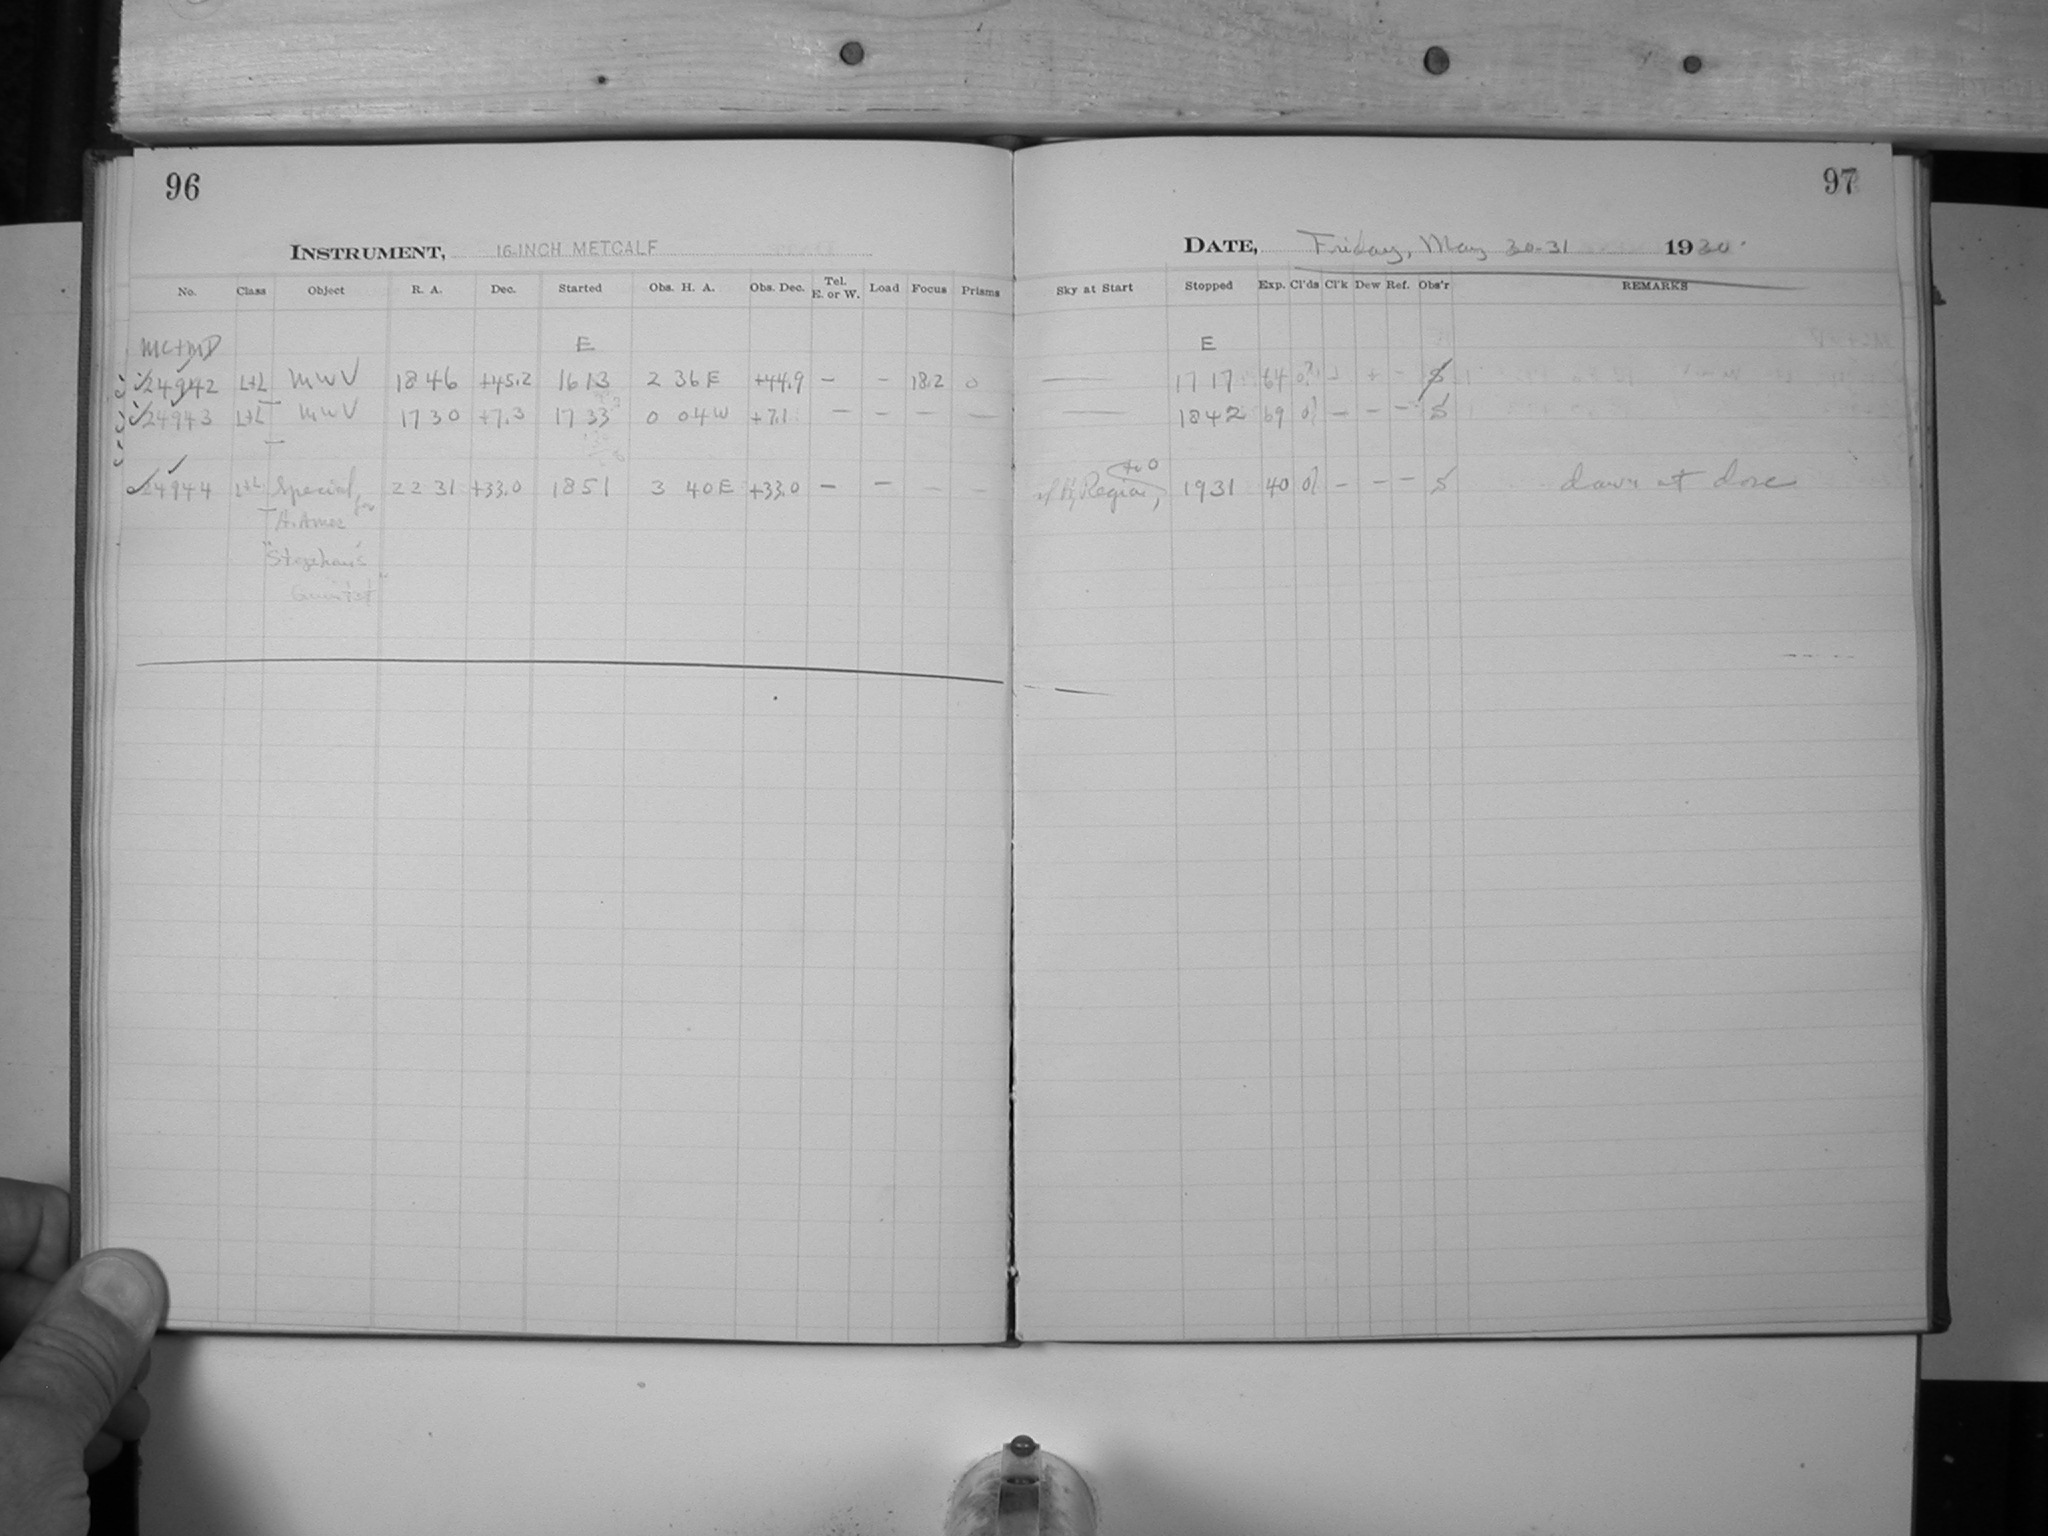 96
INSTRUMENT, 16-INCH METCALF
No. Class Object R. A. Dec. Started Obs. H. A. Obs. Dec. Tel. E. or W. Load Focus Prisms
MC+MD E
24942 L+L MWV 18 46 +45.2 16 13 2 36 E +44.9 – – 18.2 0
24943 L+L MWV 17 30 +7.3 17 33 0 04 W +7.1 – – – –
24944 L+L Special, for 22 31 +33.0 18 51 3 40 E +33.0 – – – –
H. Ames
"Stephan's
Quintet"
97
DATE, Friday, May 30-31 1930.
Sky at Start Stopped Exp. Cl'ds Cl'k Dew Ref. Obs'r REMARKS
E
17 17 64 + – S
18 42 69 – – – S
Region, 19 31 40 – – – S dawn at close